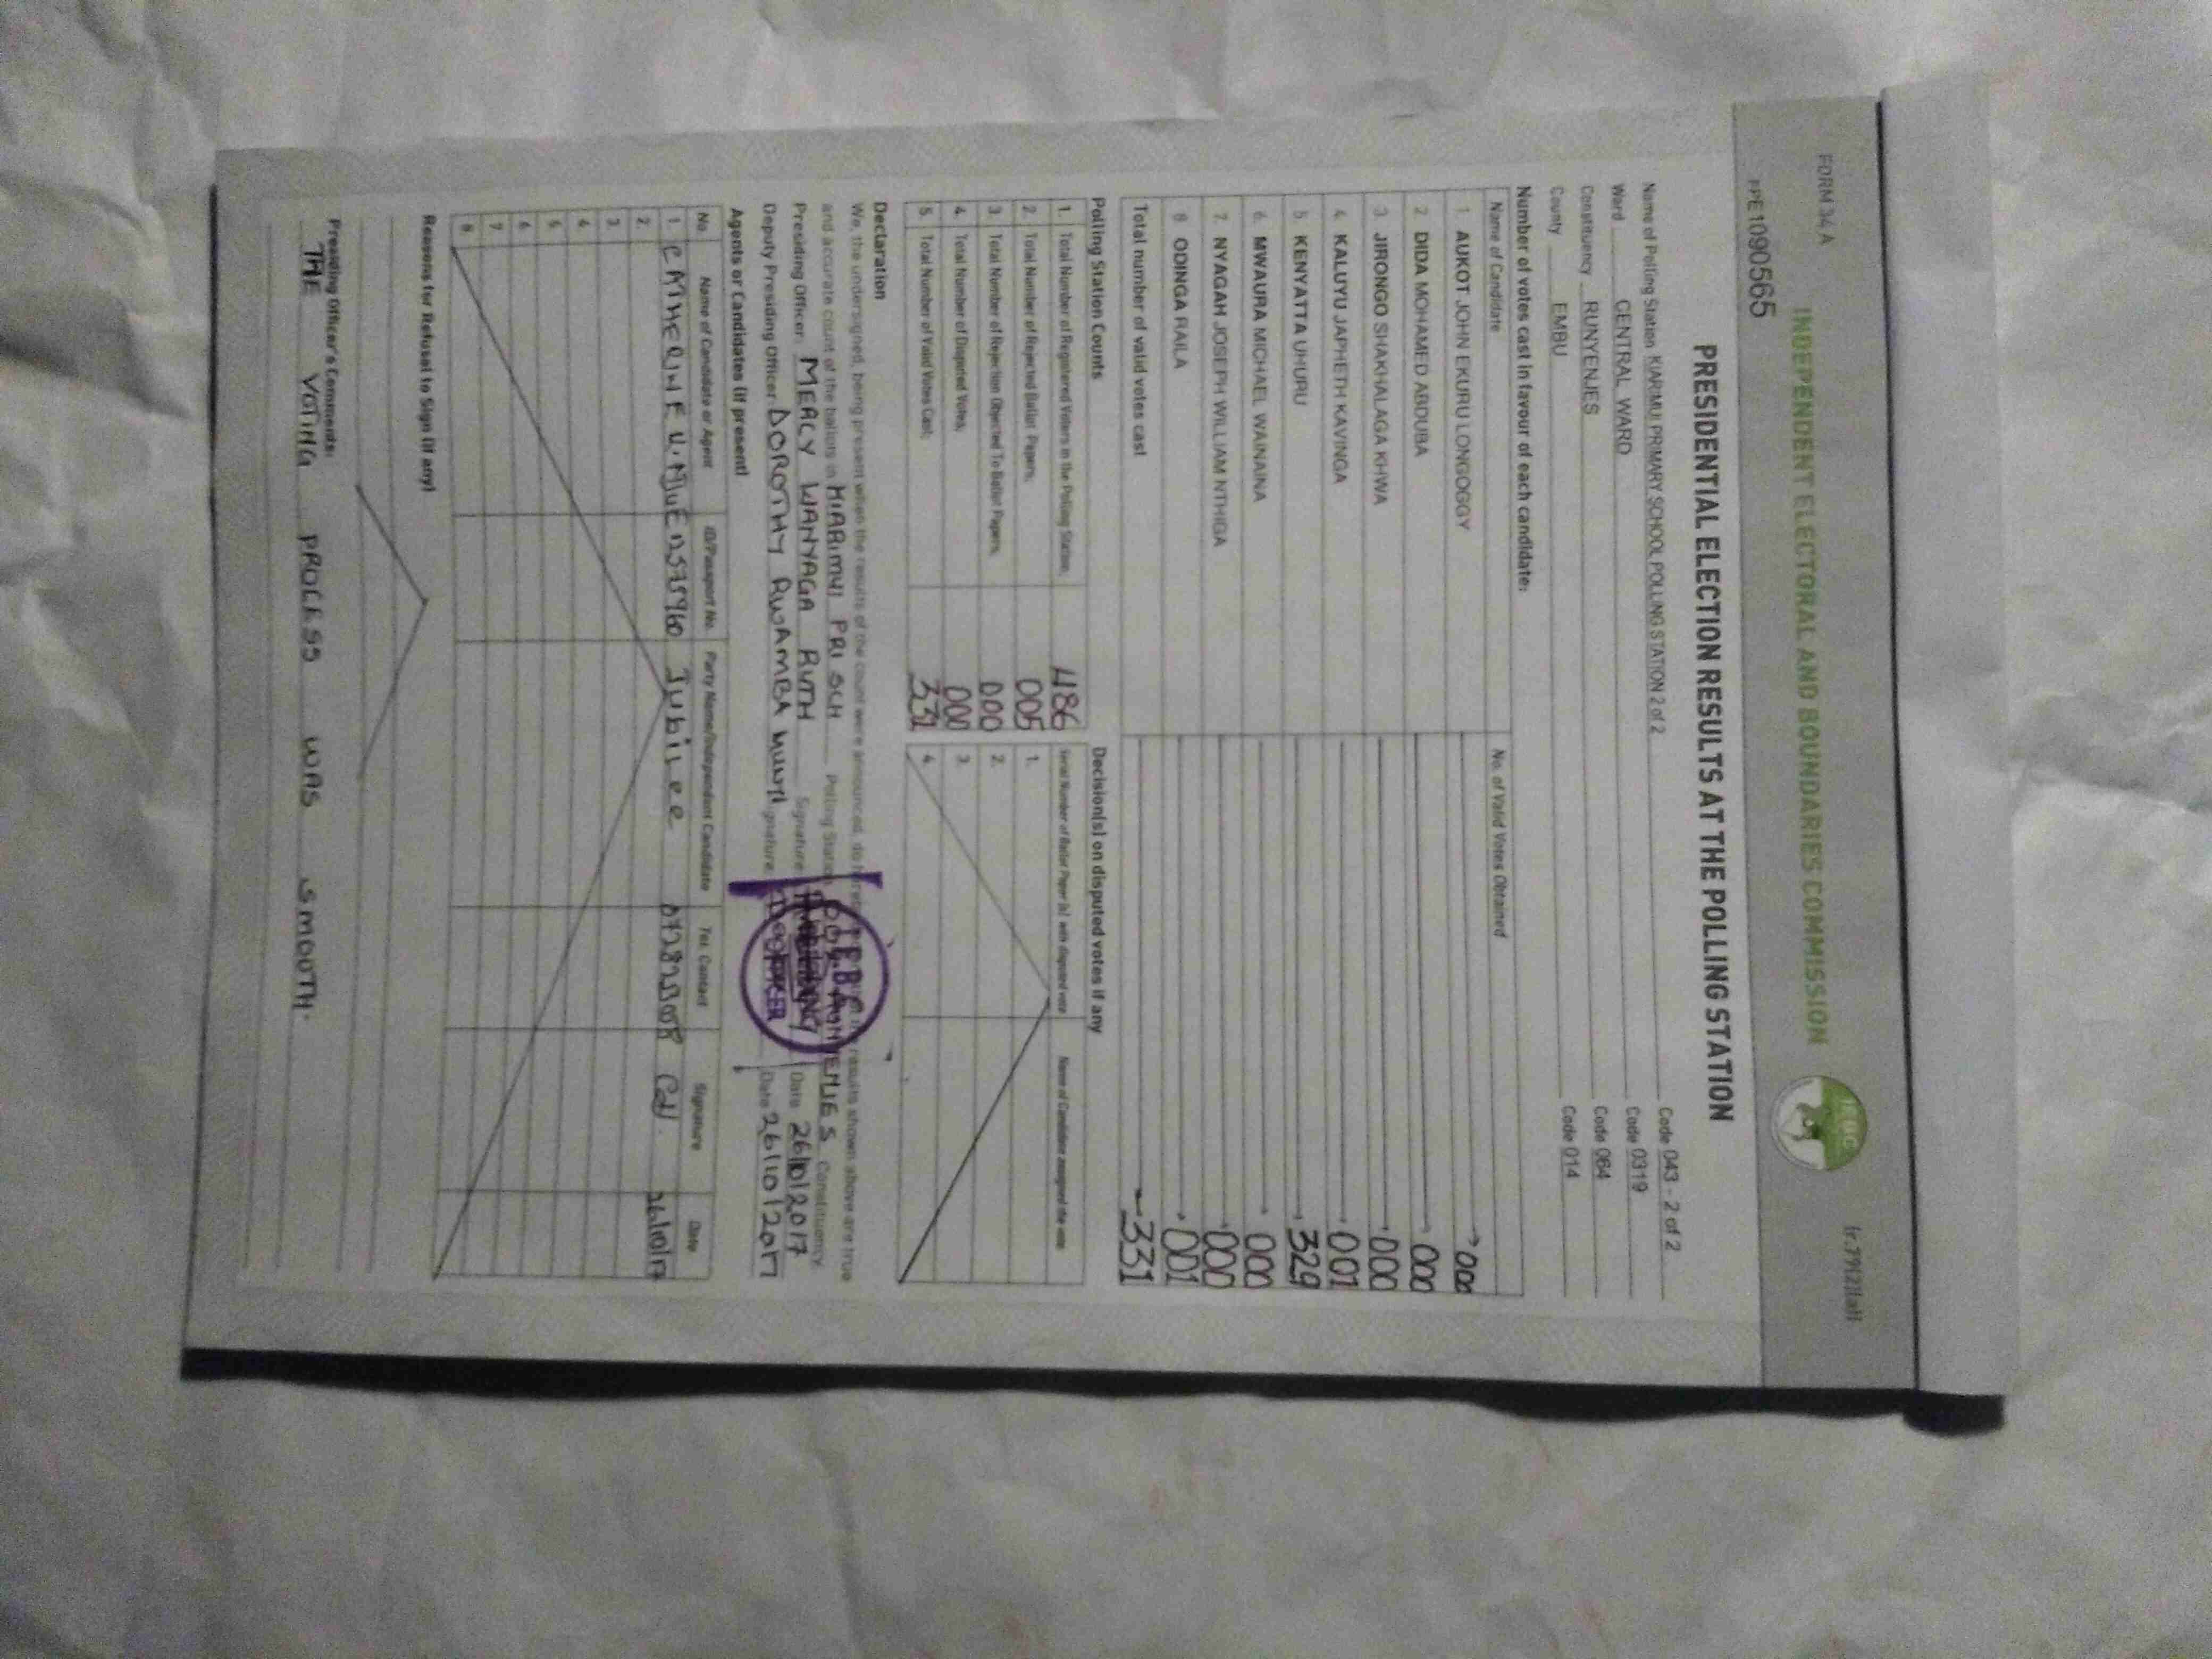 FORM 34 A
INDEPENDENT ELECTORAL AND BOUNDARIES COMMISSION
IEBC
PPE1090565
PRESIDENTIAL ELECTION RESULTS AT THE POLLING STATION
Name of Polling Station KIARIMUI PRIMARY SCHOOL POLLING STATION 2 of 2 Code 043 - 2 of 2
Ward CENTRAL WARD Code 0319
Constituency RUNYENJES Code 064
County EMBU Code 014
Number of votes cast in favour of each candidate:
Name of Candidate No. of Valid Votes Obtained
1. AUKOT JOHN EKURU LONGOGGY 000
2. DIDA MOHAMED ABDUBA 000
3. JIRONGO SHAKHALAGA KHWA 000
4. KALUYU JAPHETH KAVINGA 001
5. KENYATTA UHURU 329
6. MWAURA MICHAEL WAINAINA 000
7. NYAGAH JOSEPH WILLIAM NTHIGA 000
8. ODINGA RAILA 001
Total number of valid votes cast 331
Polling Station Counts Decision(s) on disputed votes if any
1. Total Number of Registered Voters in the Polling Station; 486 Serial Number of Ballot Paper (s) with disputed vote Name of Candidate assigned the vote
2. Total Number of Rejected Ballot Papers; 005 1.
3. Total Number of Rejection Objected To Ballot Papers; 000 2.
4. Total Number of Disputed Votes; 000 3.
5. Total Number of Valid Votes Cast; 331 4.
Declaration
We, the undersigned, being present when the results of the count were announced, do results shown above are true
and accurate count of the ballots in KIARIMUI PRI SCH Polling Station Constituency
Presiding Officer: MERCY WANYAGA RUTH Signature Date 26/10/2017
Deputy Presiding Officer: DOROTHY RWAMBA Signature Date 26/10/2017
IEBC
PRESIDING
OFFICER
Agents or Candidates (if present)
No. Name of Candidate or Agent ID/Passport No. Party Name/Independent Candidate Tel. Contact Signature Date
1. Jubilee 26/10/17
2.
3.
4.
5.
6.
7.
8.
Reasons for Refusal to Sign (if any)
Presiding Officer's Comments:
THE VOTING PROCESS WAS SMOOTH.